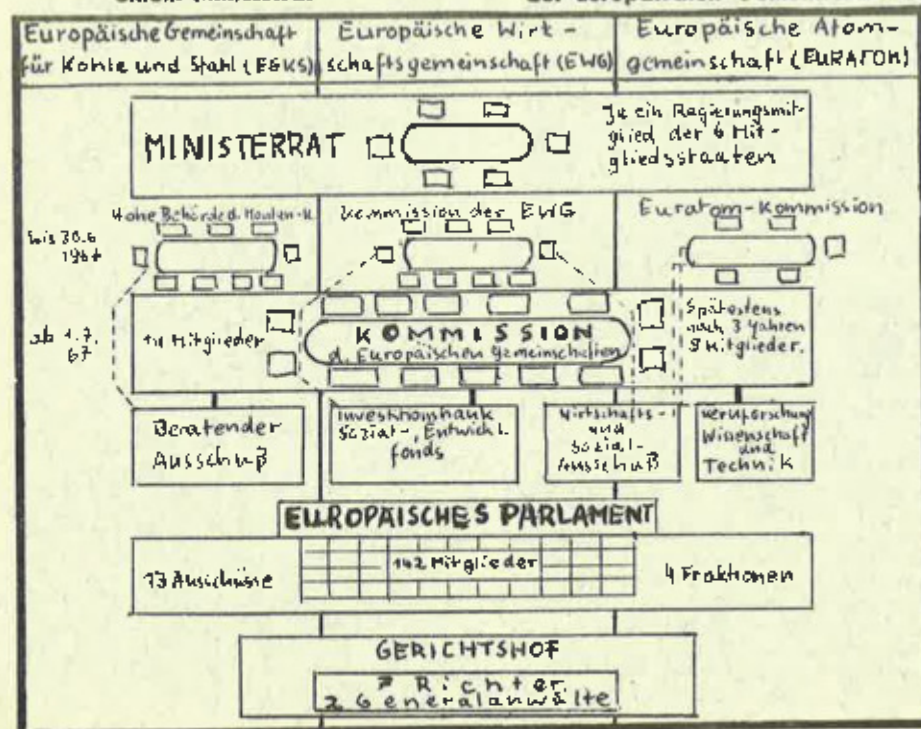 Europäische Gemeinschaft
für Kohle und Stahl (EGKS)
Europäische Wirt-
schaftsgemeinschaft (EWG)
Europäische Atom-
gemeinschaft (EURATOM)
MINISTERRAT
Je ein Regierungsmit-
glied der 6 Mit-
gliedsstaaten
Hohe Behörde d.
Kommission der EWG
Euratom-Kommission
bis 30.6
ab 1.7.
67
14 Mitglieder
KOMMISSION
d. Europäischen Gemeinschaften
Spätestens
nach 3 Jahren
9 Mitglieder.
Beratender
Ausschuß
Investitionsbank
Sozial-, Entwickl.
fonds
Wirtschafts-
und
Sozial-
Ausschuß
Kernforschung
Wissenschaft
und
Technik
EUROPÄISCHES PARLAMENT
13 Ausschüsse
142 Mitglieder
4 Fraktionen
GERICHTSHOF
7 Richter
2 Generalanwälte